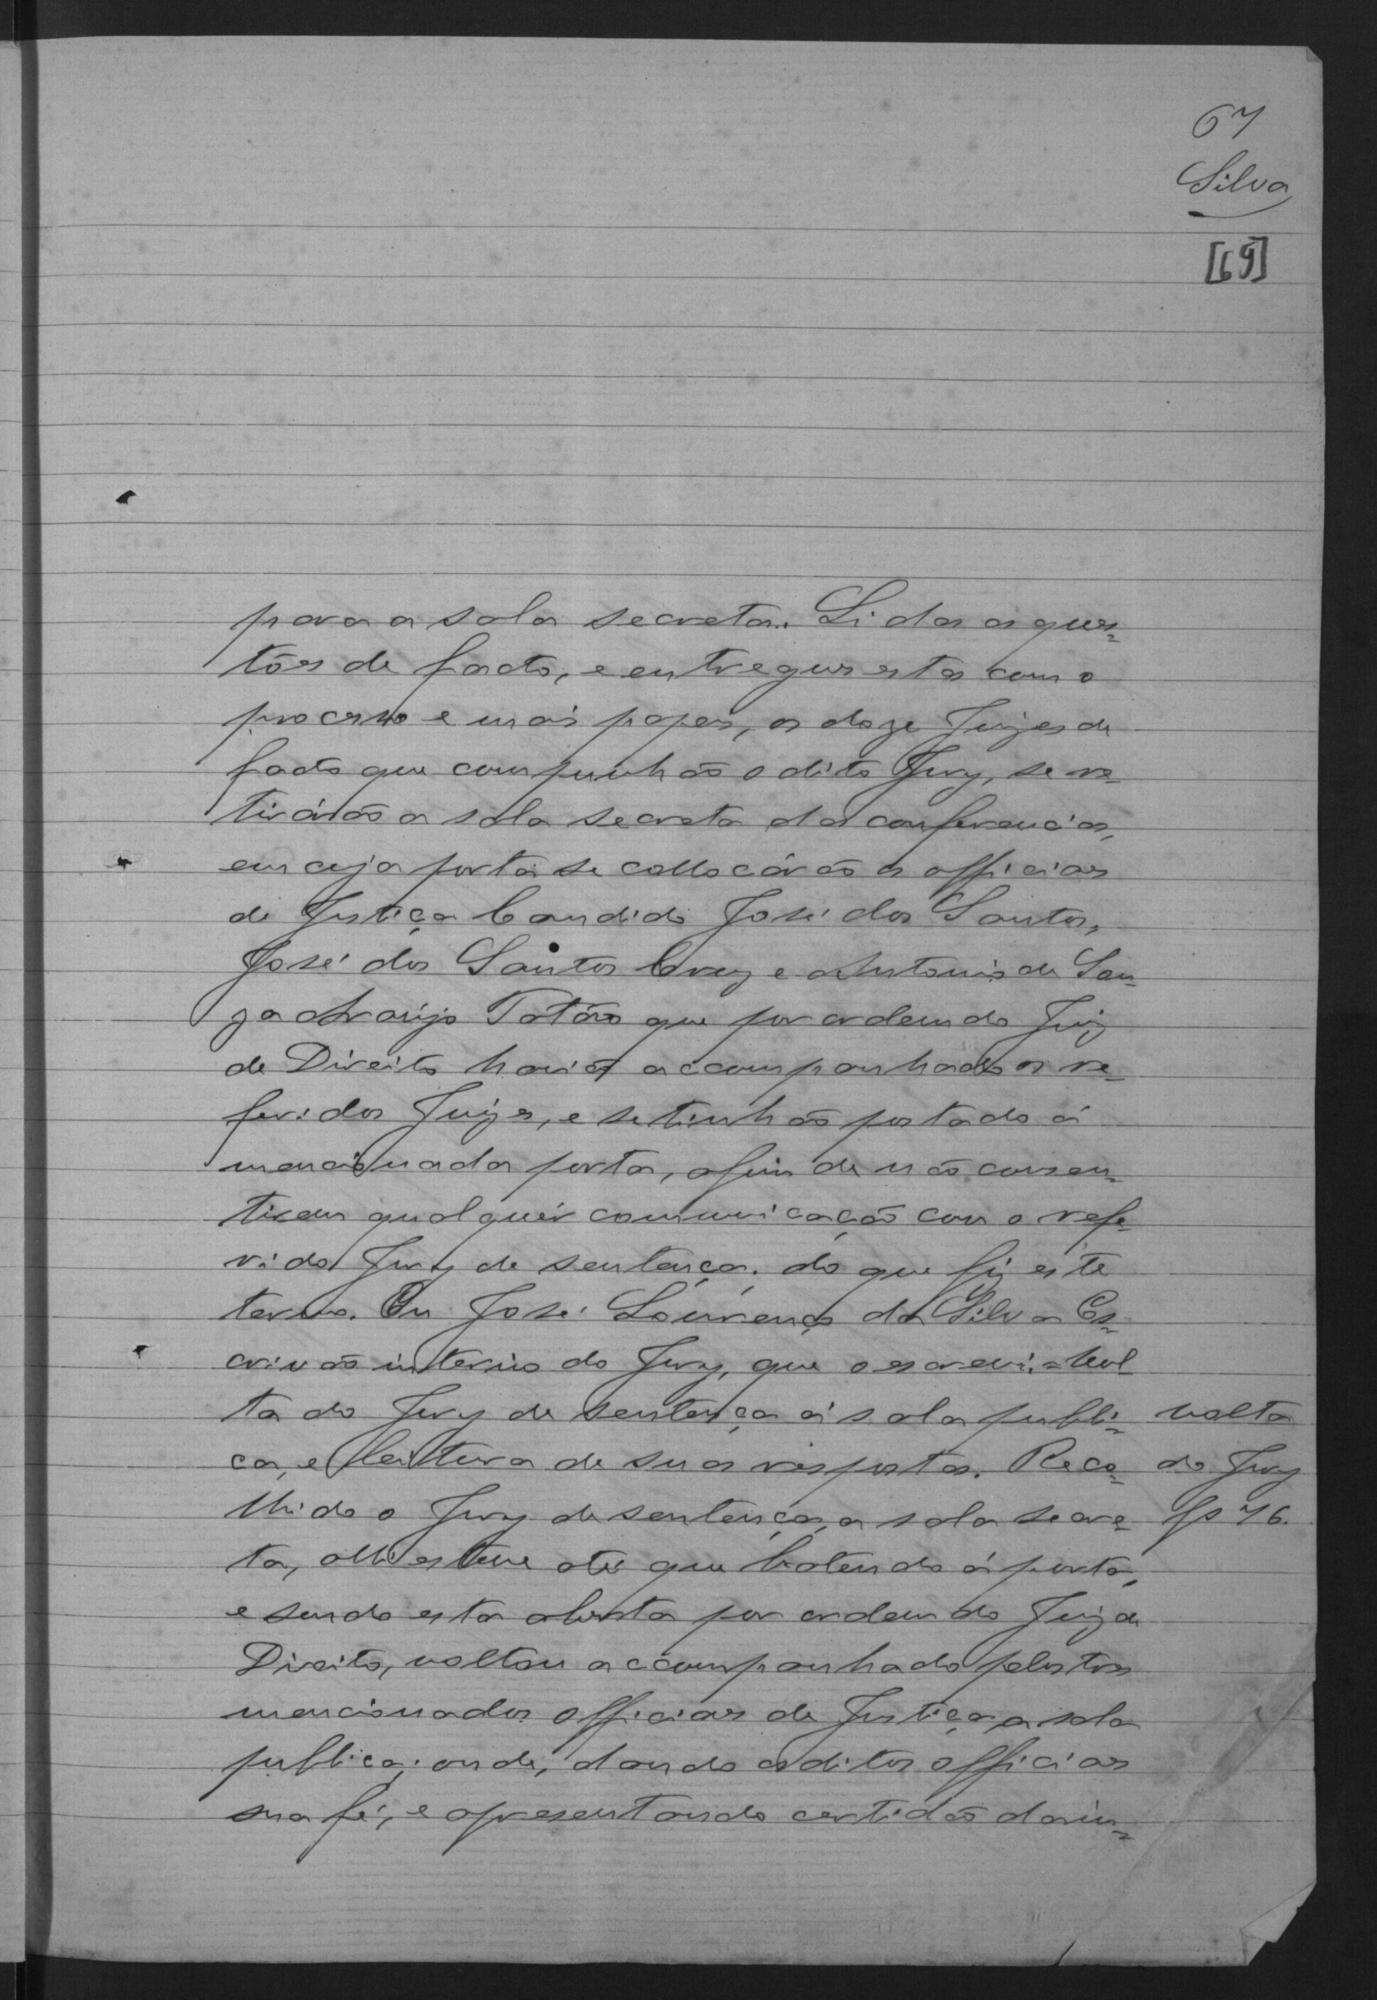 67
Silva
[69]
para a sala secreta. Lidas as ques=
tões de facto, e entregues estas com o
processo e mais papeis, os doze Juizes de
facto que compunhão o dito Jury, se re=
tirárão a sala secreta das conferencias,
em cuja porta se collocárão os officiaes
de Justiça Candido José dos Santos,
José dos Santos Cruz e Antonio de Sou=
za Araujo Tatão que por ordem do Juiz
de Direito havião accompanhado os re=
feridos Juizes, e se tinhão postado á
mencionada porta, afim de não consen=
tirem qualquér communicação com o refe=
rido Jury de sentença. do que fiz este
termo. Eu José Lourenço da Silva Es=
crivão interino do Jury, que o escrevi. = Vol
ta do Jury de sentença á sala publi= volta
ca, e leitura de suas respostas. Reco= do Jury
lhido o Jury de sentença, a sala secre= fs 76.
ta, alli esteve até que batendo á porta,
e sendo esta aberta por ordem do Juiz de
Direito, voltou accompanhado pelos tres
mencionados officiaes de Justiça a sala
publica; onde, dando os ditos officiaes
sua fé, e apresentando certidão da in=